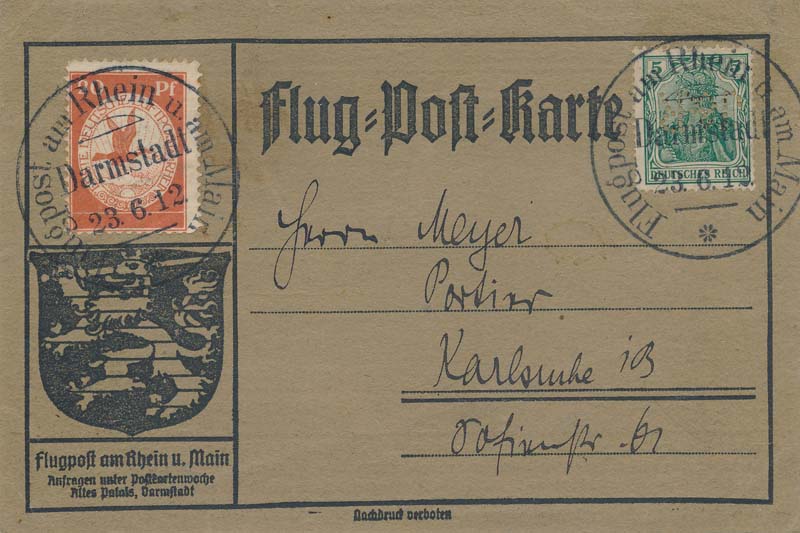 Flug-Post-Karte
30 Pf
Flugpost am Rhein u. am Main
Darmstadt
23.6.12.
5
DEUTSCHES REICH
Flugpost am Rhein u. am Main
Darmstadt
23.6.12.
*
Herrn Meyer
Portier
Karlsruhe i/B
Sofienstr.
Flugpost am Rhein u. Main
Anfragen unter Postkartenwoche
Altes Palais, Darmstadt
Nachdruck verboten